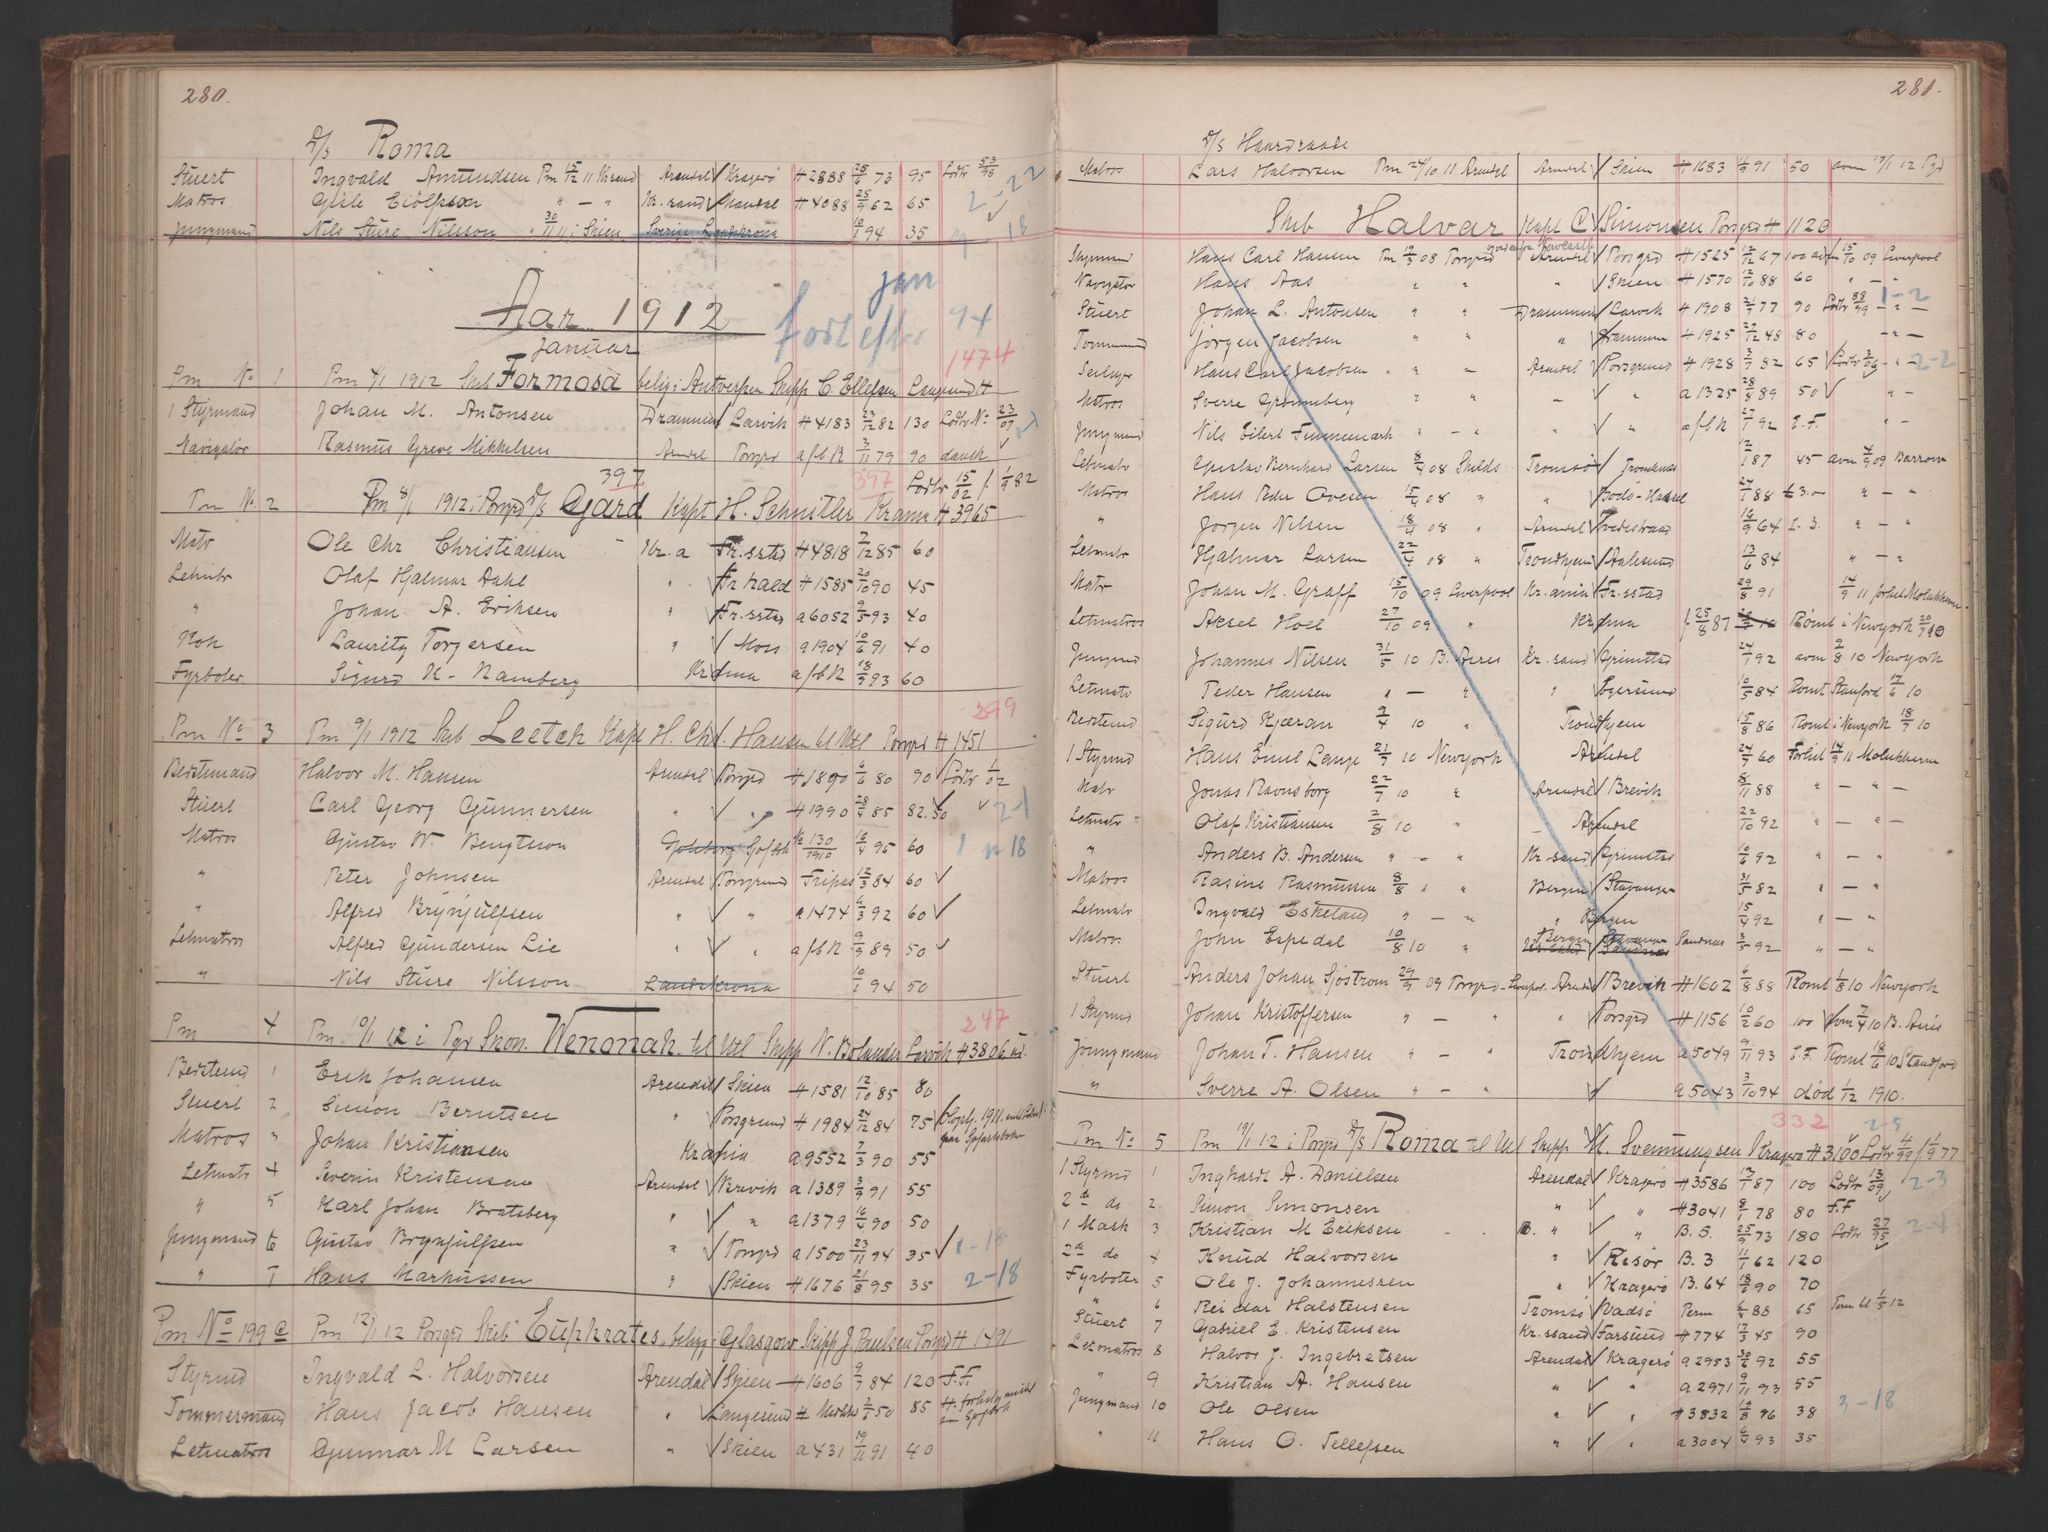 280.
D/s Roma
Stuert Ingvald Amundsen Pm 15/12 11 Kr.sand Arendal Kragerø # 2838 25/6 73 95 Lodtr 53/98
Matros Gisle Eiolfson " — " Kr. sand Mandal # 4088 25/9 62 65 2-22
Jungmand Nils Sture Nilsson 30/11 11 i Skien Sverige Landskrona 10/1 94 35 18
Aar 1912
Januar
jan
født efter 94
1474
Pm No 1 Pm 4/1 1912 Skb Formosa belig i Antwerpen Skipp C. Ellefsen Langesund #
1 Styrmand Johan M. Antonsen Drammen Larvik # 4183 23/12 82 130 Lodtr No 23/07
Navigatør Rasmus Greve Mikkelsen Arendal Porsgrd afb K 3/11 79 90 dansk
397 397 Lodtr 15/02 f. 1/9 82
Pm No 2 Pm 8/1 1912 i Porsgrd D/s Gard Kapt H. Schnitler Krania # 3965
Matr Ole Chr Christiansen Kr.a Fr.sstad # 4818 7/12 85 60
Letmtr Olaf Hjalmar Dahl " Fr hald # 1585 20/10 90 45
" Johan A. Eriksen " Fr.sstad a 6052 9/5 93 40
Kok Lauritz Torgersen " Moss a 1904 10/6 91 40
Fyrbøter Sigurd K. Ramberg Krania afb K 18/9 93 60
299
Pm No 3 Pm 9/1 1912 Skb Leetch Kapt H. Chr Hansen til Utl Porsgrd # 1451
Bedstemand Halvor M. Hansen Arendal Porsgrd # 1890 6/6 80 90 Lodtr 1/02
Stuert Carl Georg Gunnersen " " # 1990 28/4 85 82.50 2-1
Matros Gustav W. Bengtson Gøteborg Søfbok No 130/1910 16/4 95 60 1 18
" Peter Johnsen Arendal Porsgrund Fripas 12/3 84 60
" Alfred Brynjulfsen " " a 1474 6/3 92 60
Letmatros Alfred Gundersen Lie " " afb K 9/9 89 50
" Nils Sture Nilsson Landskrona 10/1 94 50
247
Pm 4 Pm 10/1 12 i Pgr Skon. Wenonah til Utl Skipp N. Bolander Larvik # 3806 ud.
Bedstemd 1 Erik Johansen Arendal Skien # 1581 12/10 85 80
Stuert 2 Simon Berntsen " Porsgrund # 1984 24/12 84 75
Matros " Johan Kristiansen Krania a 9552 7/3 90 55
Letmatr 4 Severin Kristensen Arendal Brevik a 1389 3/9 91 55
" 5 Karl Johan Bratsberg " " a 1379 16/4 90 50
Jungmand 6 Gustav Brynjulfsen " Porsgrd a 1500 23/11 94 35 1-18
" 7 Hans Markussen " Skien # 1676 21/8 95 35 2-18
Pm No 199 c Pm 12/1 12 Porsgrd Skib Euphrates, belig i Glasgow Skipp J. Paulsen Porsgrd # 1491
Styrmd Ingvald L. Halvorsen Arendal Skien # 1606 9/7 84 120 F.F.
Tømmermand Hans Jacob Hansen " Langesund # 2/1 50 85
Letmatros Gunnar M Larsen " Skien a 431 19/11 91 40
281.
D/s Haardraade
Matros Lars Halvorsen Pm 24/10 11 Arendal Arendal Skien # 1683 1/9 91 50 avm 17/1 12 Pgd
Skib Halvar Kapt C. Simonsen Porsgrd # 1120
Styrmand Hans Carl Hansen Pm 12/3 08 Porsgrd Arendal Porsgrd # 1525 12/12 67 100 avm 15/10 09 Liverpool
Navigatør Hans Aas " " " Skien # 1570 12/10 88 60 " — "
Stuert Johan L. Antonsen " " Drammen Larvik # 1908 2/7 77 90 Lodtr 88/99 — " — 1-2
Tømmermd Jørgen Jacobsen " " " Drammen # 1925 27/12 48 80 — " —
Seilmager Hans Carl Jacobsen " " Arendal Porsgrund # 1928 3/7 82 65 Lodtr 3/06 " 2-2
Matros Sverre Grønneberg " " — " a 1325 28/8 89 50 " —
Jungmand Nils Eilert Finnemark " — " " " afb K 27/1 92 E.F. " —
Letmatr Gustav Bernhard Larsen 8/4 08 Shields Tromsø Trondenes 12/1 87 45 avm 4/9 09 Barrow
Matros Hans Peder Ovesen 15/4 08 " " Bodø-Hassel 24/1 88 £3.— " — "
" Jørgen Nilsen 18/4 08 " Arendal Tvedestrand 16/9 64 £.3. " — "
Letmatr Hjalmar Larsen 22/4 08 " Trondhjem Aalesund 13/6 84 " — "
Matr Johan M. Graff 15/10 09 Liverpool Kr.ania Fr.sstad 29/8 91 14/9 11 forlist Molukkerne
Letmatros Aksel Hoel 27/10 09 " Krania f. 25/8 87 Rømt i Newyork 20/7 10
Jungmd Johannes Nilsen 31/5 10 B. Aires Kr.sand Grimstad 24/1 92 avm 2/8 10 Newyork
Letmatr Peder Hansen " — " " Egersund 10/5 84 Rømt Stanford 17/6 10
Bedstemd Sigurd Kjæran 9/4 10 " Trondhjem 15/8 86 Rømt i Newyork 18/7 10
1 Styrmd Hans Emil Lange 21/7 10 Newyork Arendal 24/9 60 Forlist 14/9 11 Molukkerne
Matr Jonas Ravnsborg 22/7 10 " Arendal Brevik 8/11 88 " — " —
Letmatr Olaf Kristiansen 2/8 10 " Arendal 22/10 92 " — " —
" Anders B. Andersen " — " Kr.sand Grimstad 10/6 92 " — "
Matros Rasine Rasmussen 8/8 " " Bergen Stavanger 31/5 82 " — "
Letmatr Ingvald Eskeland " — " " Bergen 15/4 92 " — "
Matros John Espedal 10/8 10 " Bergen Stavanger Sandnæs 3/5 92 " — "
Stuert Anders Johan Sjøstrøm 29/9 09 Porsgrd - Liverpol. Arendal Brevik # 1602 6/8 88 Rømt 1/8 10 Newyork
1 Styrmd Johan Kristoffersen " — " " Porsgrd # 1156 10/2 60 100 avm 7/4 10 B. Aires
Jungmand Johan T. Hansen " — " Trondhjem a 5049 9/11 93 E.F. Rømt 18/6 10 Stanford
" Sverre A. Olsen " — " a 5043 3/10 94 død 1/12 1910.
332 2-5
Pm No 5 Pm 19/1 12 i Porsgrd D/s Roma til Utl Skipp M. Svenningsen Kragerø # 3100 Lodtr 4/99 f. 1/9 77
1 Styrmd 1 Inghardt A. Danielsen Arendal Kragerø # 3586 17/1 87 100 Lodtr 13/09 2-3
2de do 2 Simon Simonsen " " # 3041 8/1 78 80 F.F
1 Mask 3 Kristian M Eriksen " " B. S. 25/9 73 180 Lodtr 27/95 2-4
2de do 4 Knud Halvorsen " Risør B. 3 11/1 62 120
Fyrbøter 5 Ole J. Johannessen " Kragerø B. 64 18/6 90 70
" 6 Reidar Halstensen Tromsø Vadsø Perm 6/8 88 65
Stuert 7 Gabriel E. Kristensen Kr.ssand Farsund # 774 17/3 45 90
Letmatros 8 Halvor J. Ingebretsen Arendal Kragerø a 2953 30/6 92 55
" 9 Kristian A. Hansen " " a 2971 9/11 93 55
Jungmand 10 Ole Olsen " " # 3832 12/8 96 38 3-18
" 11 Hans O. Tellefsen " " a 3004 6/4 93 35